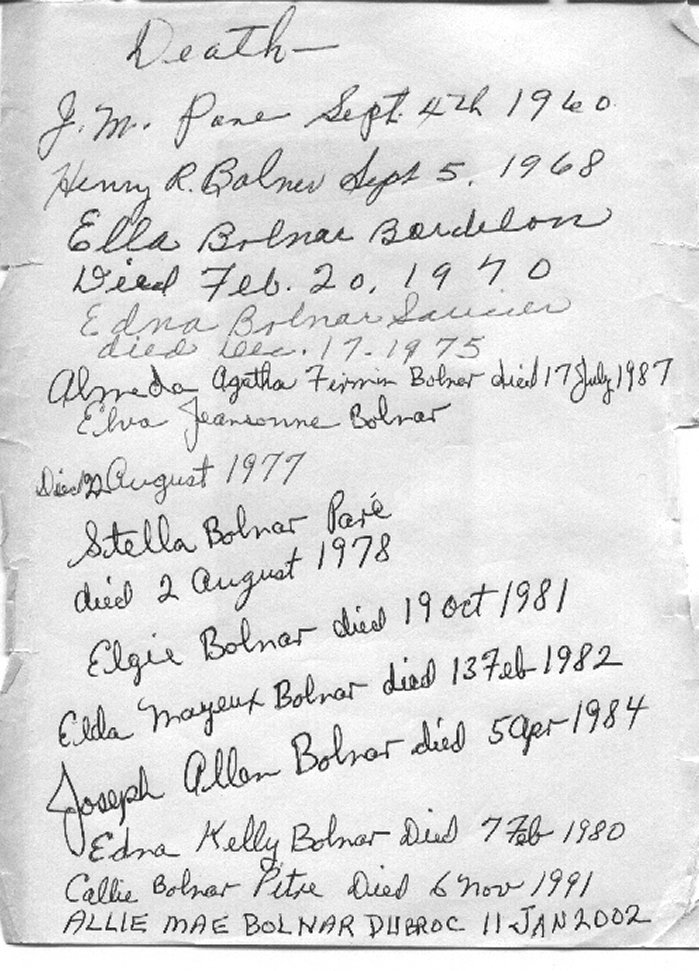 Death—
J. M. Pare Sept. 4th 1960
Henry R. Bolner Sept 5, 1968
Ella Bolnar Bordelon
Died Feb. 20, 1970
Edna Bolnar Saucier
died Dec. 17-1975
Almeda Agatha Firmin Bolnar died 17 July 1987
Elva Jeansonne Bolnar
Died August 1977
Stella Bolnar Paré
died 2 August 1978
Elgie Bolnar died 19 Oct 1981
Elda Mayeux Bolnar died 13 Feb 1982
Joseph Allen Bolnar died 5 Apr 1984
Edna Kelly Bolnar Died 7 Feb 1980
Callie Bolnar Pitre Died 6 Nov 1991
ALLIE MAE BOLNAR DUBROC 11 JAN 2002